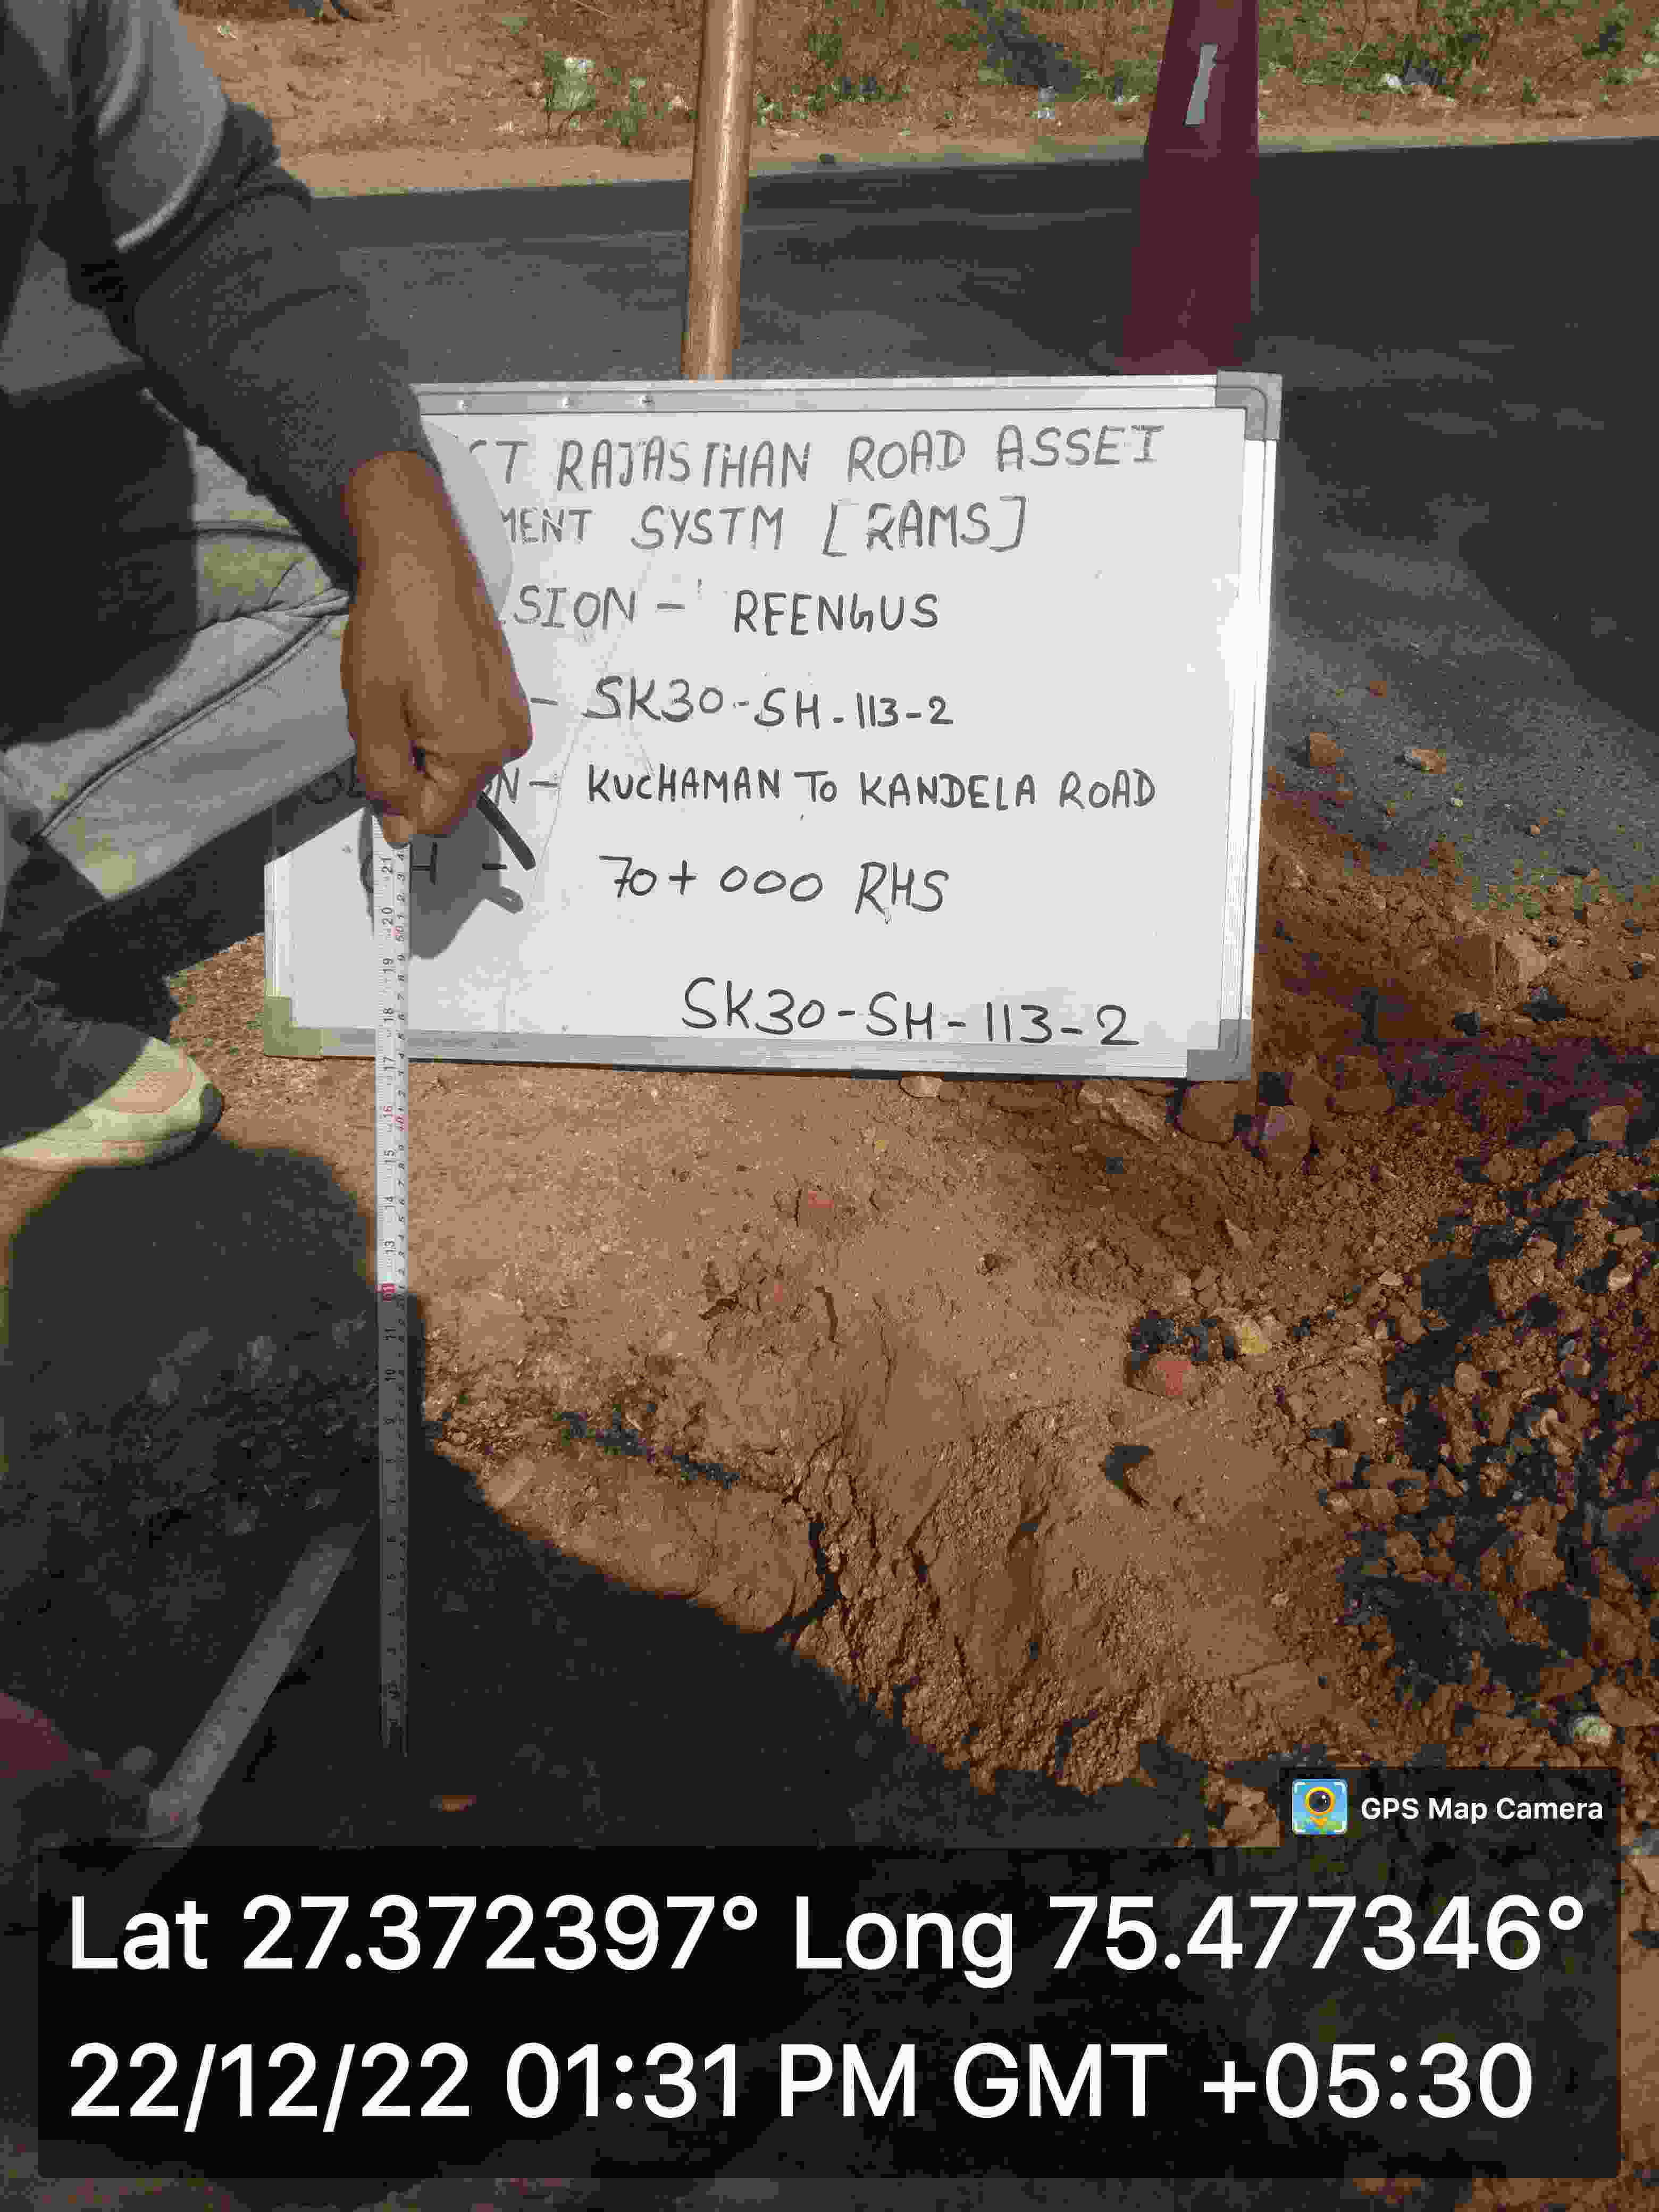 CT RAJASTHAN ROAD ASSET
MENT SYSTM [RAMS]
SION - REENGUS
- SK30-SH-113-2
N - KUCHAMAN TO KANDELA ROAD
CH - 70+000 RHS
SK30-SH-113-2
21
20
19
18
17
16
15
14
13
11
10
GPS Map Camera
Lat 27.372397° Long 75.477346°
22/12/22 01:31 PM GMT +05:30